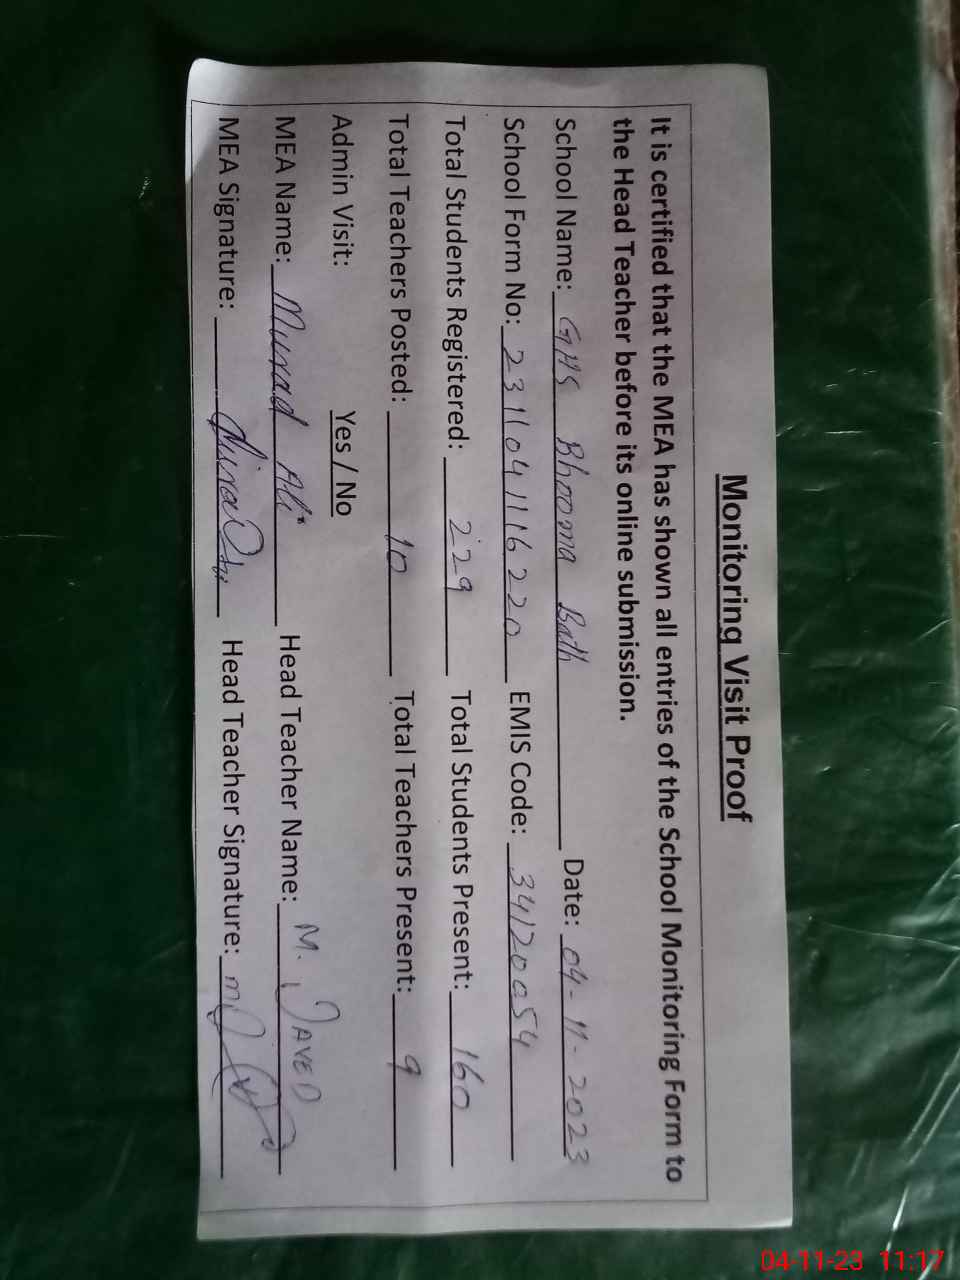 Monitoring Visit Proof
It is certified that the MEA has shown all entries of the School Monitoring Form to
the Head Teacher before its online submission.
School Name: GHS Bhooma Bath Date: 04-11-2023
School Form No: 2311041116220 EMIS Code: 34120054
Total Students Registered: 229 Total Students Present: 160
Total Teachers Posted: 10 Total Teachers Present: 9
Admin Visit: Yes / No
MEA Name: Murad Ali Head Teacher Name: M. JAVED
MEA Signature: Head Teacher Signature:
04-11-23 11:17